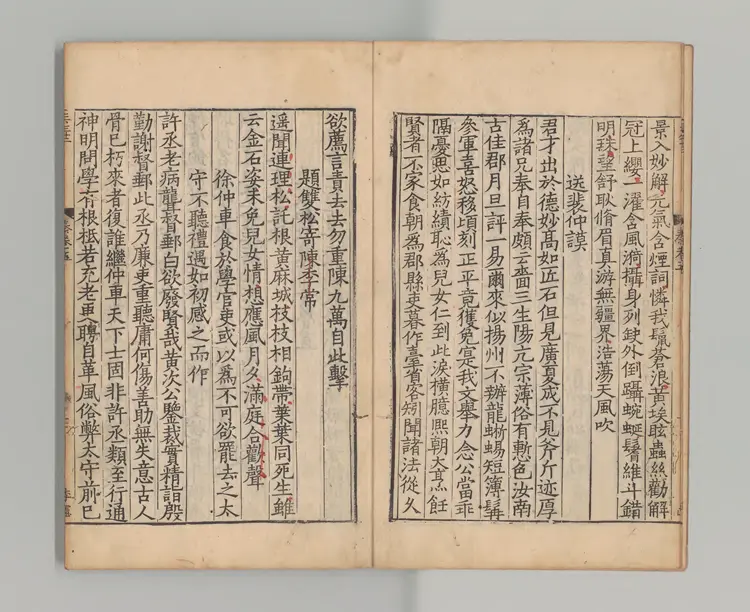 景入妙解元氣含煙詞憐我鬢蒼浪黃埃眩蟲絲勸解
冠上纓一濯含風漪攝身列缺外倒躡蜿蜒鬐維斗錯
明珠望舒耿脩眉真游無疆界浩蕩天風吹
送裴仲謨
君才出於德妙髙如匠石但見廣夏成不見斧斤迹厚
為諸兄奉自奉頗云嗇面三生陽元宗薄俗有慙色汝南
古佳郡月旦評一易爾來似揚州不辦龍蜥蜴短簿髯
參軍喜怒移頃刻正平竟獲免寔我文舉力念公當乖
隔憂思如紡績恥為兒女仁到此淚橫臆熙朝大烹飪
賢者不家食朝為郡縣吏暮作臺省客矧聞諸法從久
欲薦言責去去勿重陳九萬自此擊
題雙松寄陳季常
遥聞連理松託根黃麻城枝枝相鉤帶葉葉同死生雖
云金石姿未免兒女情想應風月久滿庭合歡聲
徐仲車食於學官吏或以為不可欲罷去之太
守不聽禮遇如初感之而作
許丞老病聾督郵白欲廢賢哉黃次公鑒裁實精詣殷
勤謝督郵此丞乃廉吏重聽庸何傷善助無失意古人
骨已朽來者復誰繼仲車天下士固非許丞類至行通
神明問學有根柢若充老更聘自革風俗弊太守前已